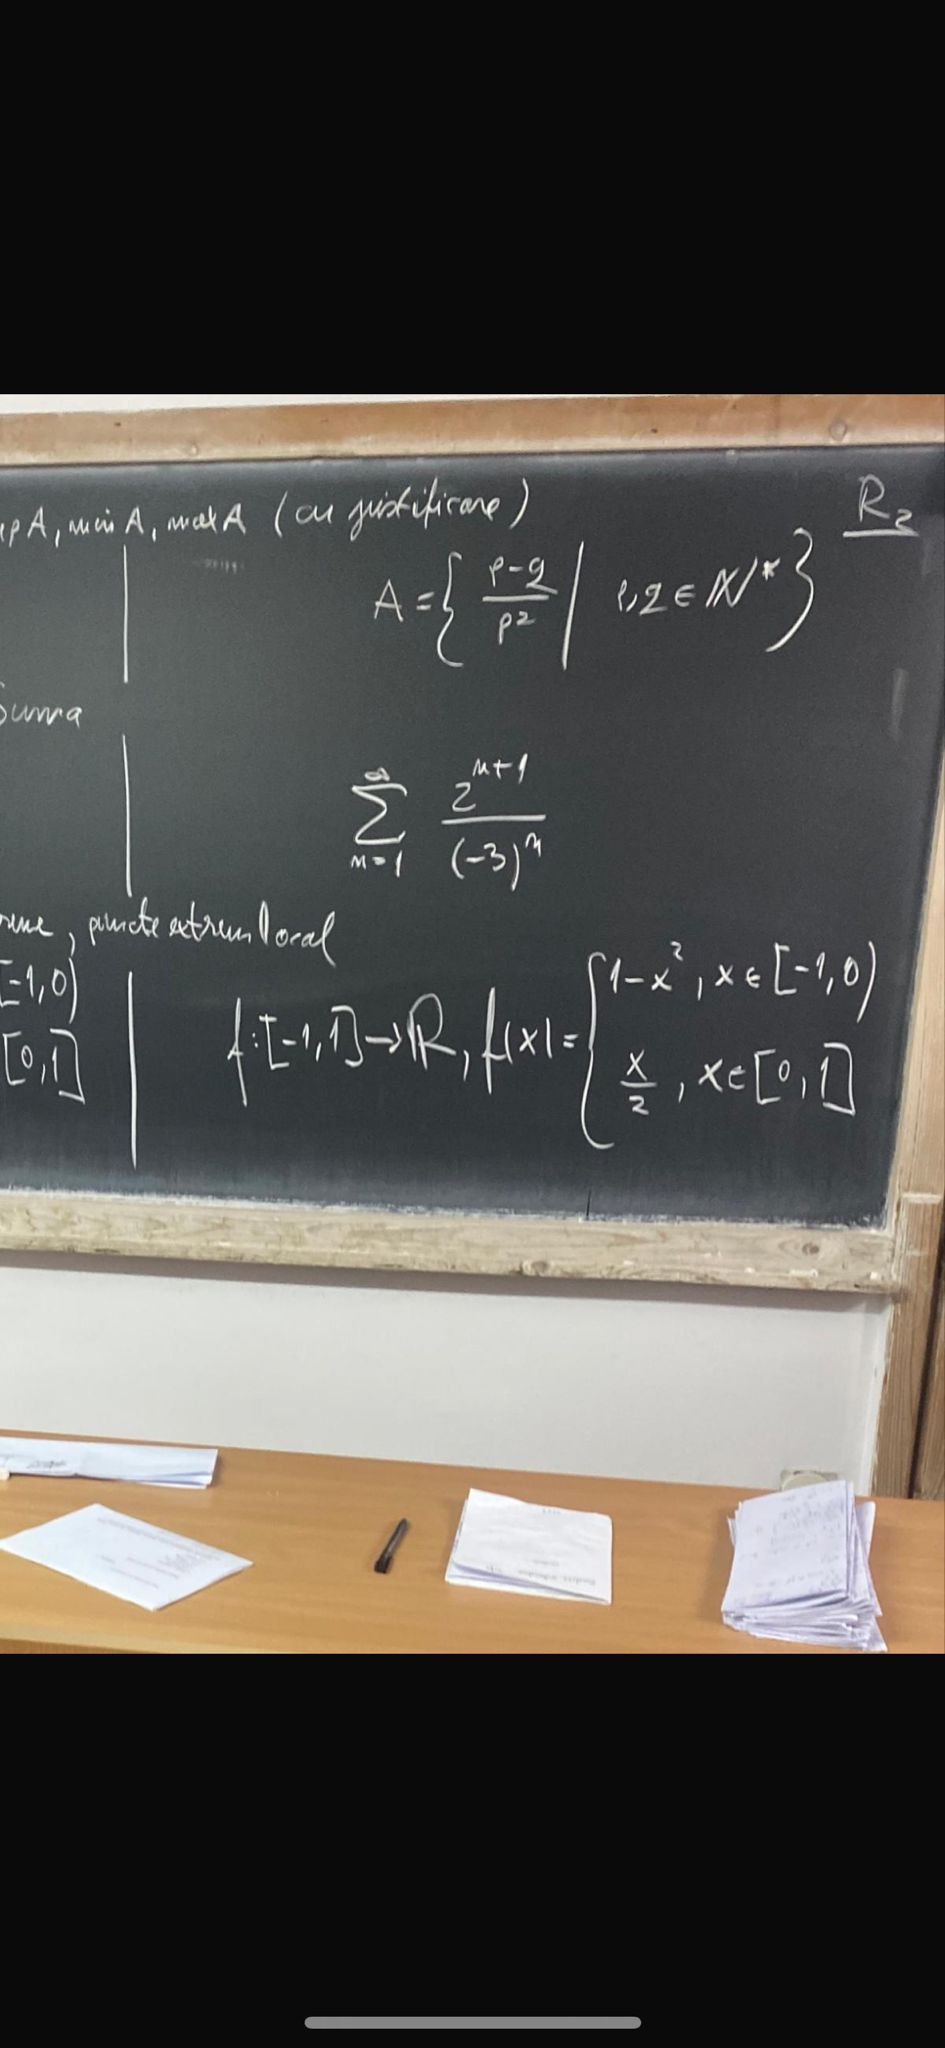 up A, min A, max A (cu justificare)
R₂
A = { (p-q)/p² | p,q ∈ ℕ* }
Suma
∑_{n=1}^{∞} 2^{n+1}/(-3)^n
, puncte extrem local
[-1,0)
[0,1]
f:[-1,1]→ℝ, f(x) = { 1-x², x∈[-1,0)
x/2, x∈[0,1]